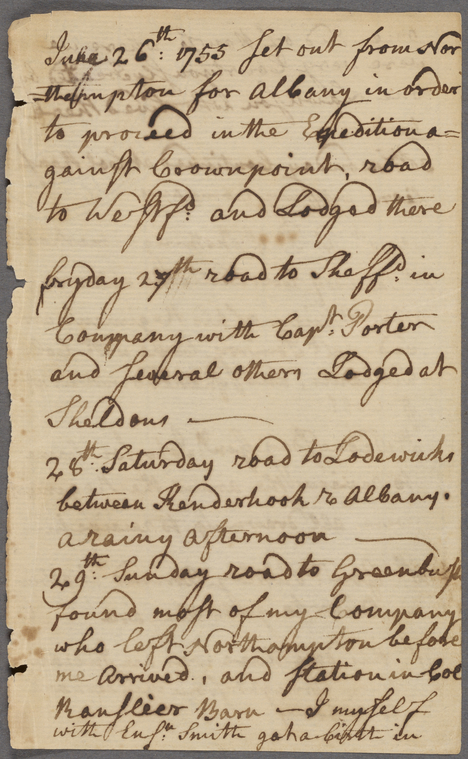 June 26th: 1755 set out from Nor
=thampton for Albany in order
to proceed in the Expedition a=
gainst Crownpoint, road
to Westfd: and Lodged there
fryday 27th road to Sheffd: in
Company with Capt: Porter
and several others Lodged at
Sheldons —
28th: Saturday road to Lodewicks
between Kenderhook & Albany.
a rainy afternoon —
29th: Sunday road to Greenbush
found most of my Company
who left Northampton before
me Arrived, and station in Col
Ranslier Barn — I myself
with Ensn Smith gat a Birth in